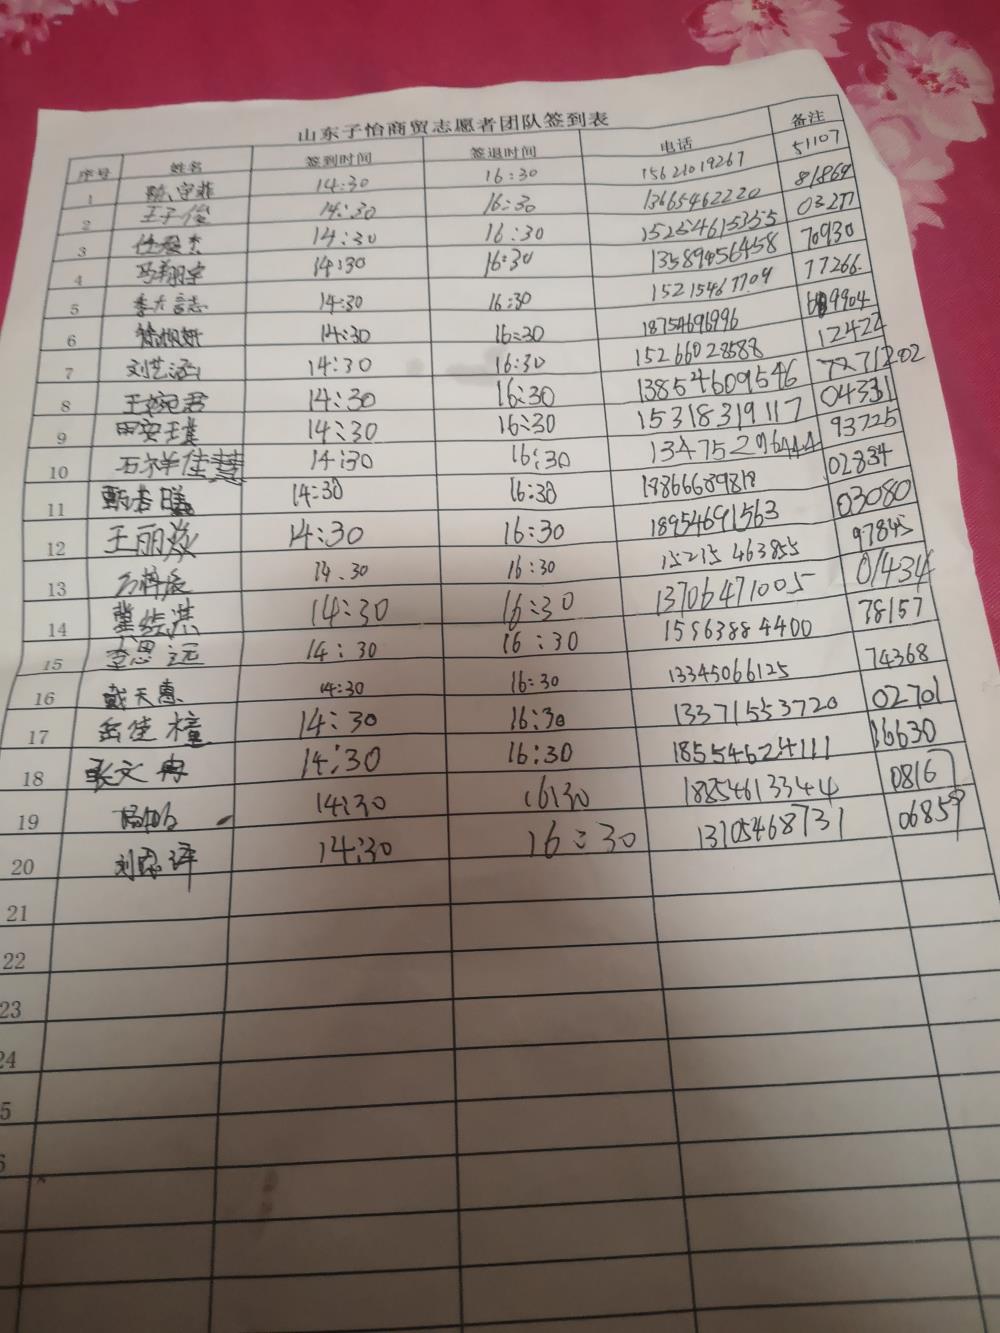 山东子怡商贸志愿者团队签到表
序号 姓名 签到时间 签退时间 电话 备注
1 14:30 16:30 15621019267 51107
2 王子俊 14:30 16:30 13665462220 81869
3 任 14:30 16:30 15254615355 03277
4 冯翔宇 14:30 16:30 13589456458 70930
5 李 14:30 16:30 15215461709 77266
6 14:30 16:30 18754696996 9904
7 刘艺涵 14:30 16:30 15266028588 12422
8 王婉君 14:30 16:30 13854609546 7271202
9 田安琪 14:30 16:30 15318319117 04331
10 石祥佳慧 14:30 16:30 13475296444 93725
11 14:30 16:30 18866689818 02834
12 王丽焱 14:30 16:30 18954691563 03080
13 14.30 16:30 15215463855 97845
14 14:30 16:30 13706471005 01434
15 李思远 14:30 16:30 15563884400 78157
16 戴天惠 14:30 16:30 13345066125 74368
17 岳佳橦 14:30 16:30 13371553720 02701
18 张文冉 14:30 16:30 18554624111 16630
19 14:30 16:30 18854613344 0816
20 刘 14:30 16:30 13105468731 06859
21
22
23
24
5